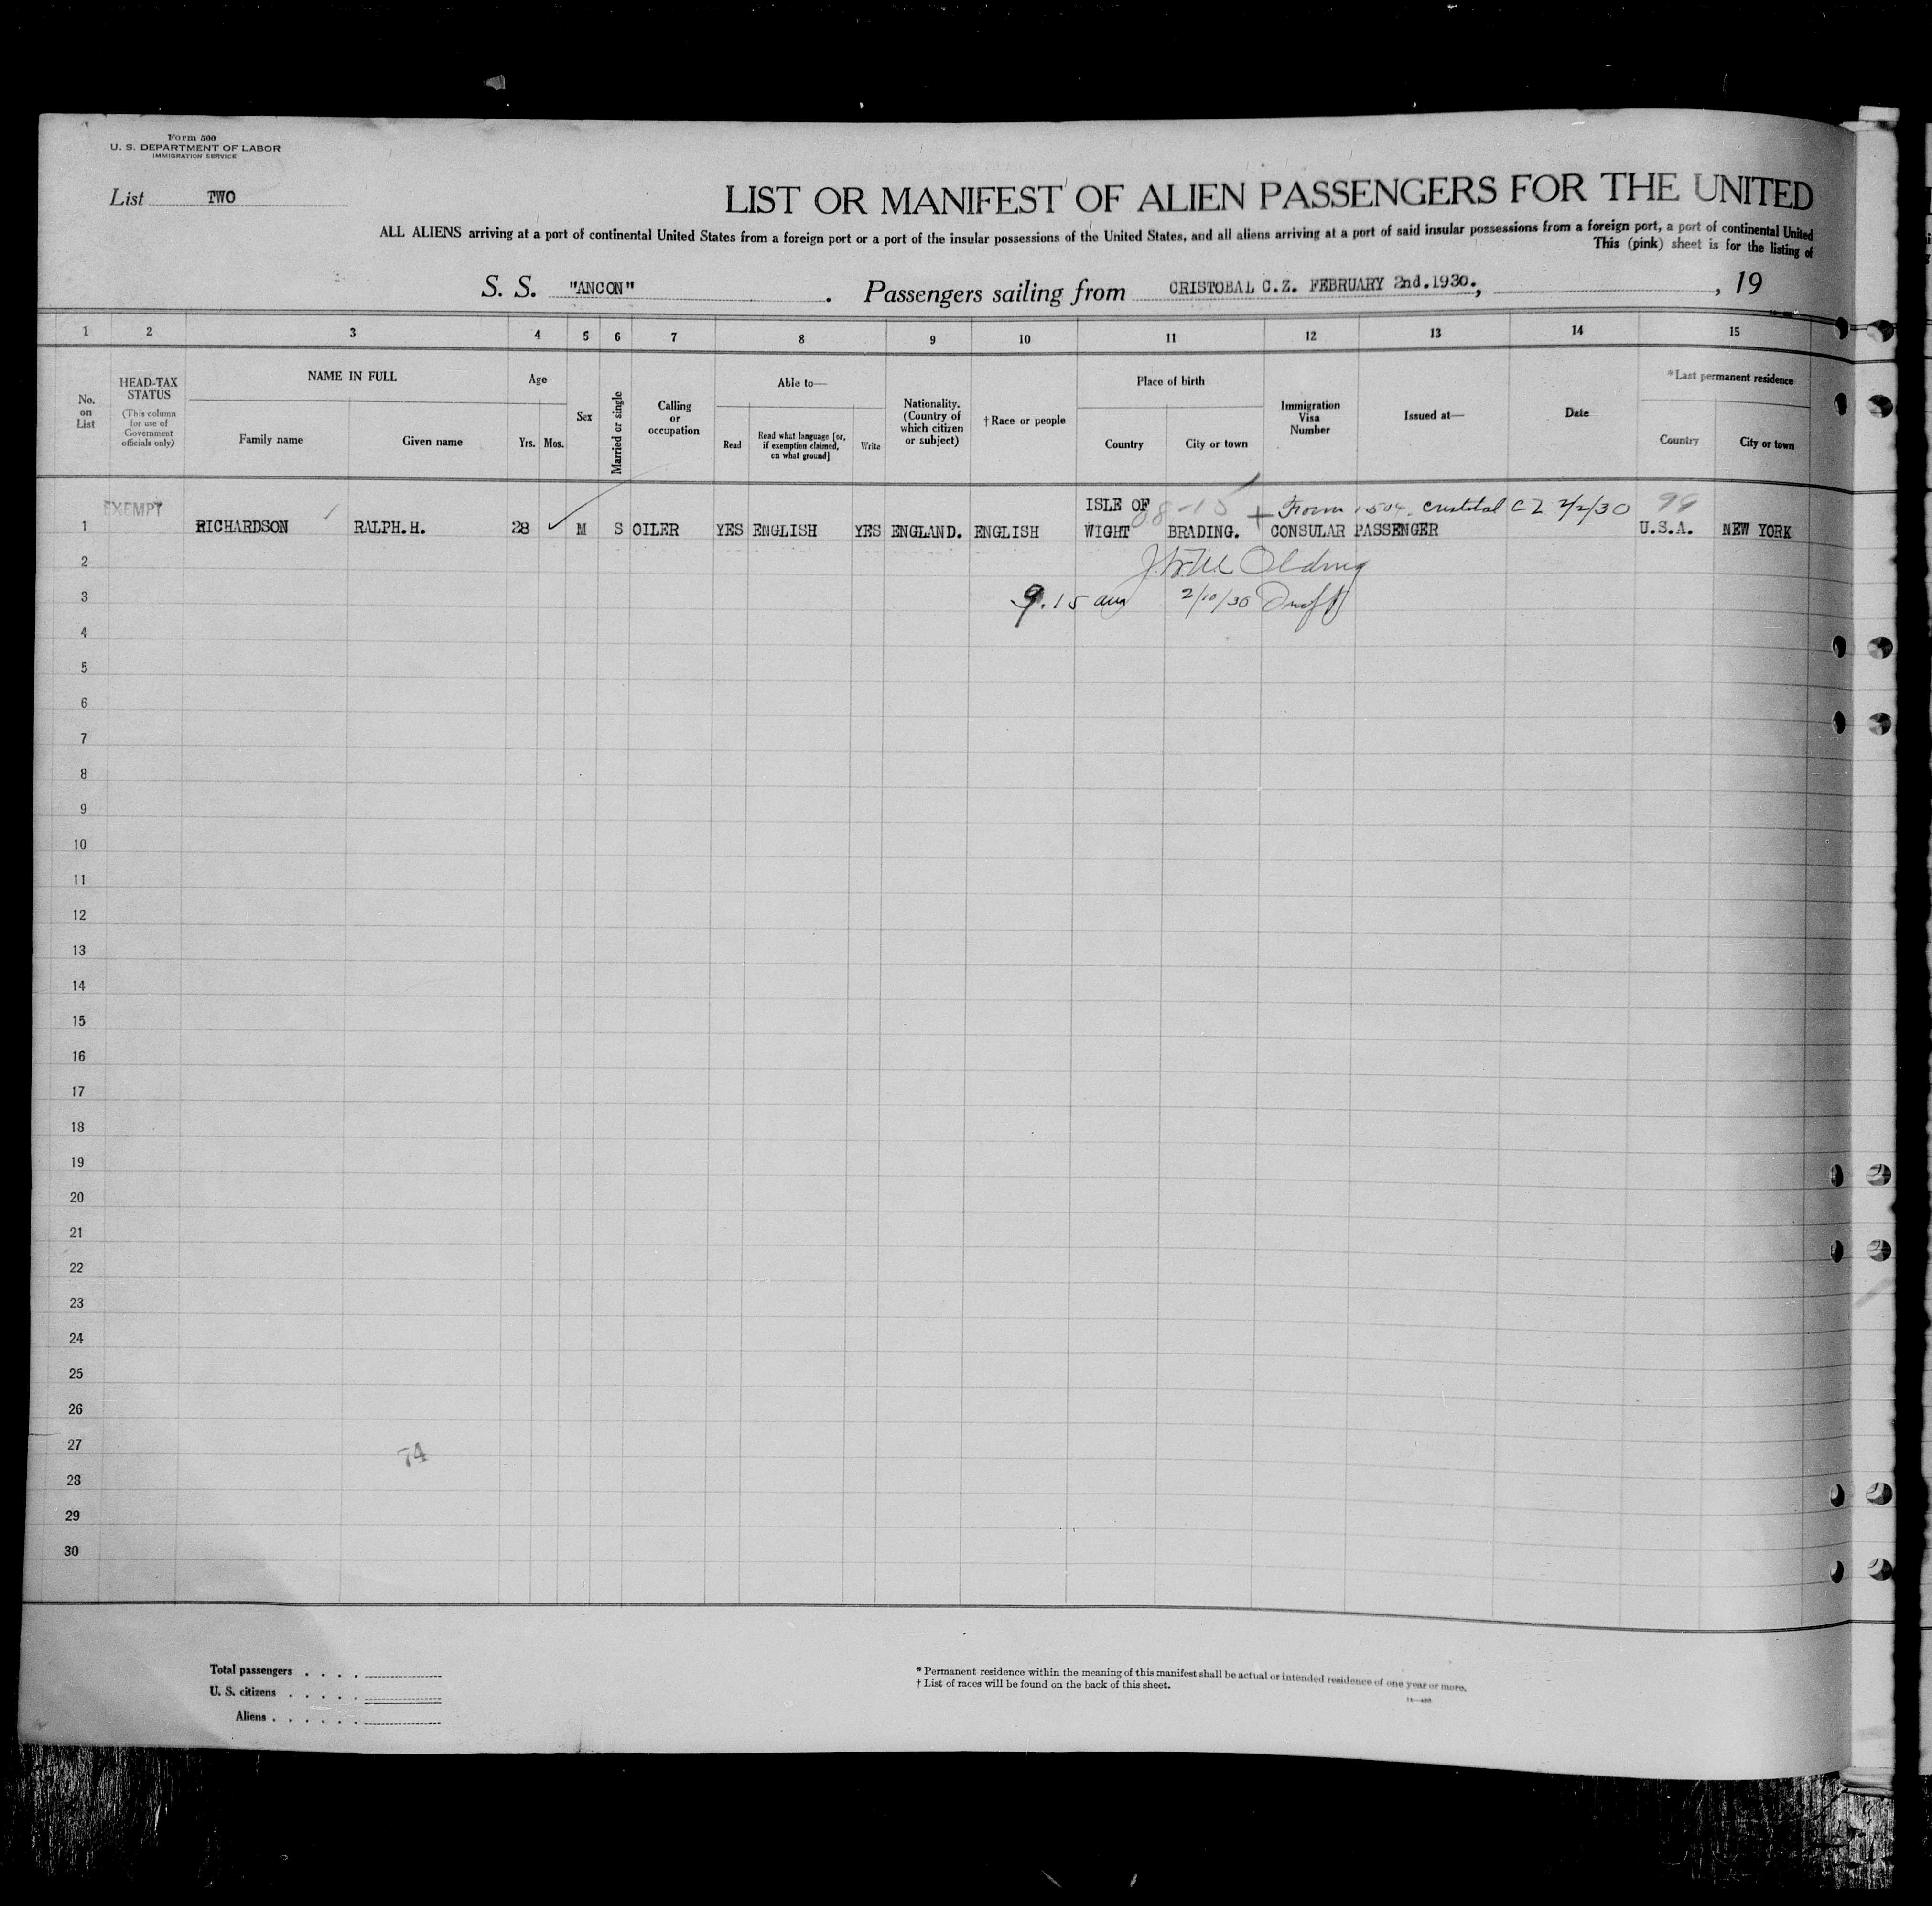 Form 500
U. S. DEPARTMENT OF LABOR
IMMIGRATION SERVICE
List TWO
LIST OR MANIFEST OF ALIEN PASSENGERS FOR THE UNITED
ALL ALIENS arriving at a port of continental United States from a foreign port or a port of the insular possessions of the United States, and all aliens arriving at a port of said insular possessions from a foreign port, a port of continental United
This (pink) sheet is for the listing of
S. S. "ANCON". Passengers sailing from CRISTOBAL C.Z. FEBRUARY 2nd.1930., , 19
1 2 3 4 5 6 7 8 9 10 11 12 13 14 15
No. on List
HEAD-TAX STATUS
(This column for use of Government officials only)
NAME IN FULL
Family name
Given name
Age
Yrs. Mos.
Sex
Married or single
Calling or occupation
Able to—
Read
Read what language [or, if exemption claimed, on what ground]
Write
Nationality. (Country of which citizen or subject)
†Race or people
Place of birth
Country
City or town
Immigration Visa Number
Issued at—
Date
*Last permanent residence
Country
City or town
EXEMPT ISLE OF 08-15 Form 1504. Cristobal C Z 2/2/30 99
1 RICHARDSON RALPH.H. 28 M S OILER YES ENGLISH YES ENGLAND. ENGLISH WIGHT BRADING. CONSULAR PASSENGER U.S.A. NEW YORK
2
3 9.15 am 2/10/30
4
5
6
7
8
9
10
11
12
13
14
15
16
17
18
19
20
21
22
23
24
25
26
27
74
28
29
30
Total passengers . . . .
U. S. citizens . . . . .
Aliens . . . . . .
* Permanent residence within the meaning of this manifest shall be actual or intended residence of one year or more.
† List of races will be found on the back of this sheet.